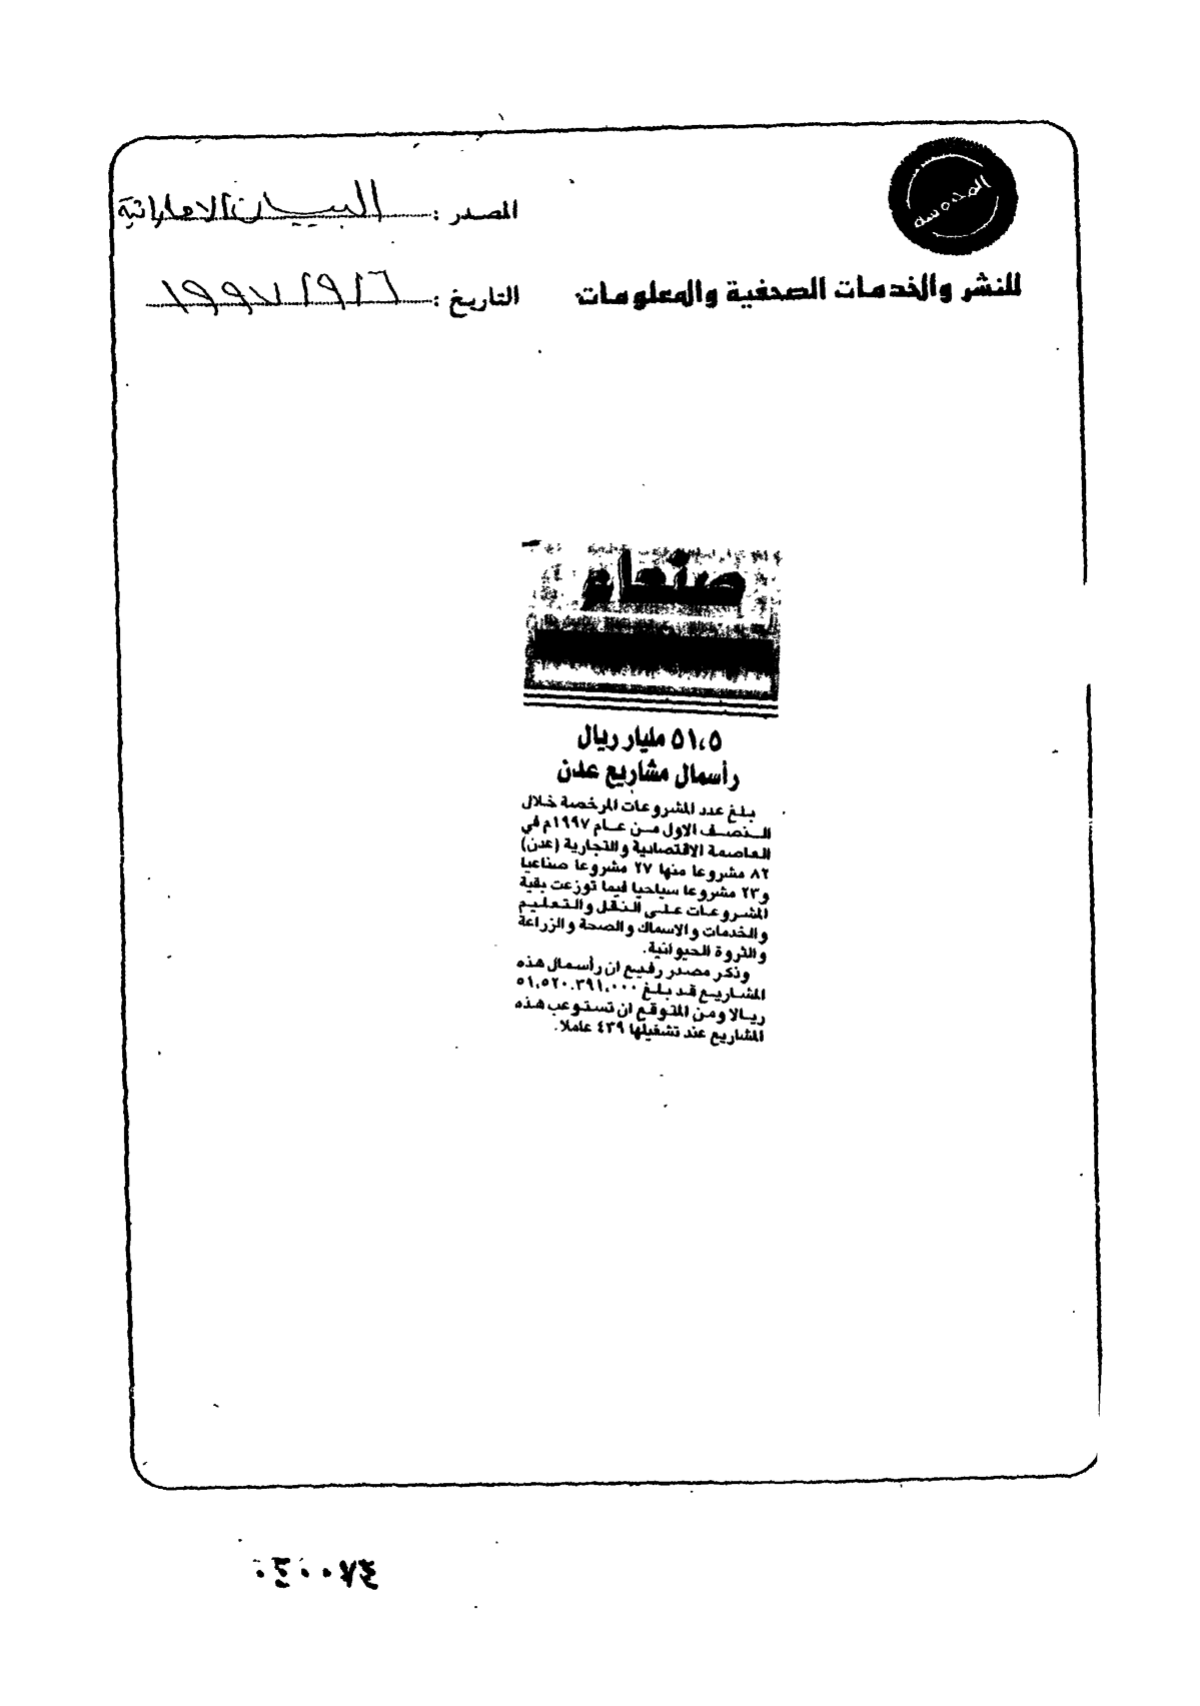 المصدر : البيان الاماراتية
للنشر والخدمات الصحفية والمعلومات
التاريخ : ١٩٩٧/٩/٦
صنعاء
٥١،٥ مليار ريال
رأسمال مشاريع عدن
بلغ عدد المشروعات المرخصة خلال
النصف الاول من عام ١٩٩٧م في
العاصمة الاقتصادية والتجارية (عدن)
٨٢ مشروعا منها ٢٧ مشروعا صناعيا
و٢٣ مشروعا سياحيا فيما توزعت بقية
المشروعات على النقل والتعليم
والخدمات والاسماك والصحة والزراعة
والثروة الحيوانية.
وذكر مصدر رفيع ان رأسمال هذه
المشاريع قد بلغ ٥١،٥٢٠،٣٩١،٠٠٠
ريالا ومن المتوقع ان تستوعب هذه
المشاريع عند تشغيلها ٤٣٩ عاملا.